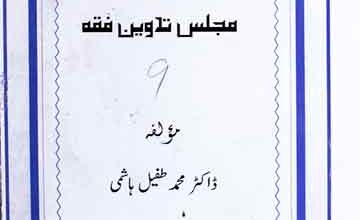 مجلس تدوین فقہ
9
مؤلفہ
ڈاکٹر محمد طفیل ہاشمی